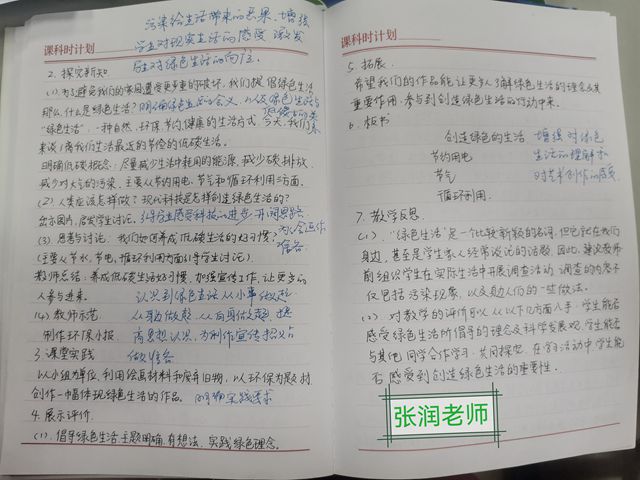 污染给生活带来的恶果、增强
课科时计划
学生对现实生活的感受 激发
学生对绿色生活的向往
2. 探究新知
(1). 为了避免我们的家园遭受更多重的破坏，我们提倡绿色生活
那么，什么是绿色生活？明确绿色生活的含义，以及绿色生活与
"绿色生活"，一种自然、环保、节约、健康的生活方式，今天，我们
来谈谈离我们生活最近的节俭的低碳生活。
明确低碳概念：尽量减少生活中耗用的能源，减少碳排放，
减少对大气的污染，主要从节约用电、节气和循环利用三方面。
(2) 人类应该怎样做？现代科技是怎样创造绿色生活的？
出示图片，启发学生讨论。引导学生感受科技的进步，开阔思路
为后面作
(3). 思考与讨论：我们如何养成低碳生活的好习惯？
准备
(主要从节水，节电，循环利用方面引导学生讨论)
教师总结：养成低碳生活好习惯，加强宣传工作，让更多的
人参与进来。 认识到绿色生活从小事做起
(4) 教师示范 从身边做起、从自身做起，提
制作环保小报 高思想认识，为制作宣传招
3. 课堂实践 做准备
以小组为单位，利用绘画材料和废弃旧物，以环保为题材
创作一幅体现绿色生活的作品。 明确实践要求
4. 展示评价
(1). 倡导绿色生活主题明确，有想法，实践绿色理念。
课科时计划
5. 拓展
希望我们的作品能让更多人了解绿色生活的理念及其
重要作用，参与到创造绿色生活的行动中来。
6. 板书
创造绿色的生活 增强对绿色
节约用电 生活的理解和
节气 对艺术创作的感受
循环利用
7. 教学反思
(1). "绿色生活"是一个比较新颖的名词，但它就在我们
身边，甚至是学生家人经常谈论的话题，因此，建议教师
前组织学生在实际生活中开展调查活动，调查的内容不
仅包括污染现象，以及身边人们的一些做法。
(2). 对教学的评价可以从以下几方面入手：学生能否
感受绿色生活所倡导的理念及科学发展观，学生能否
与其他同学合作学习，共同探究，在学习活动中，学生能
否感受到创造绿色生活的重要性。
张润老师